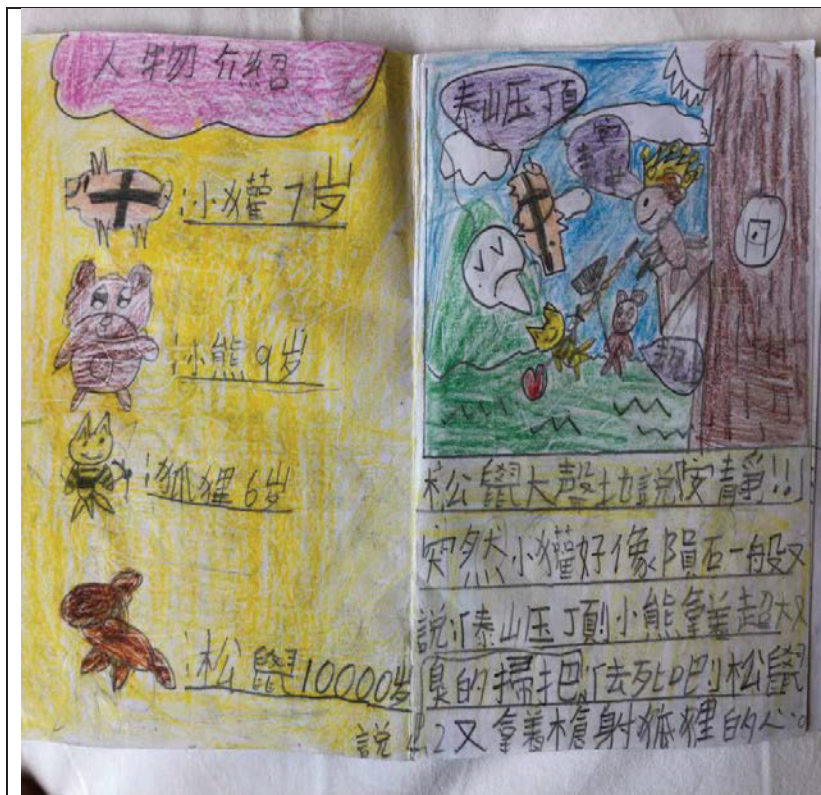 人物介紹
:小獾7岁
:小熊9岁
:狐狸6岁
:松鼠10000岁
泰山压頂
安靜
松鼠大聲地說「安靜!!」
突然小獾好像隕石一般又
說「泰山压頂!小熊拿着超大又
臭的掃把「去死吧!」松鼠
說 又拿着槍射狐狸的心。